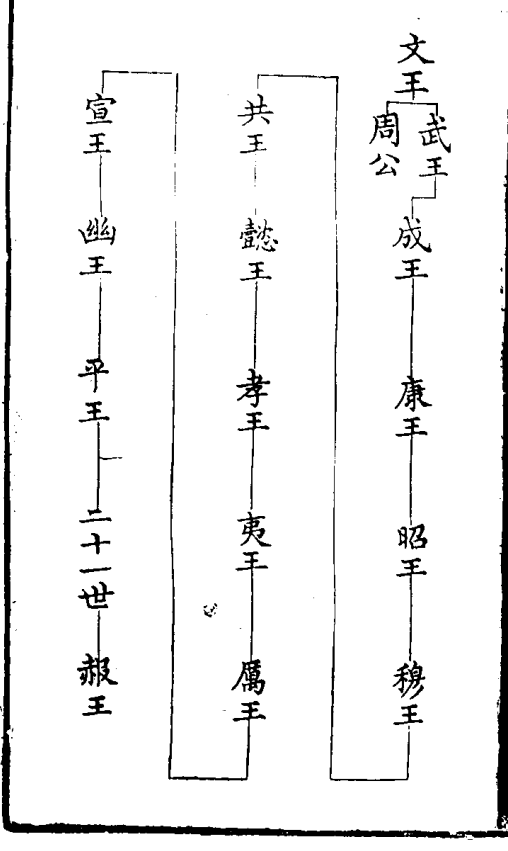 文王
武王
周公
成王
康王
昭王
穆王
共王
懿王
孝王
夷王
厲王
宣王
幽王
平王
二十一世
赧王